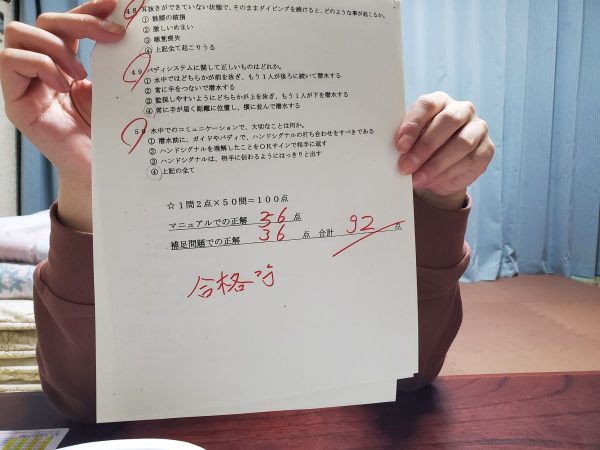 48 耳抜きができていない状態で、そのままダイビングを続けると、どのような事が起こるか。
① 鼓膜の破損
② 激しいめまい
③ 聴覚喪失
④ 上記全て起こりうる
49 バディシステムに関して正しいものはどれか。
① 水中ではどちらかが前を泳ぎ、もう1人が後ろに続いて潜水する
② 常に手をつないで潜水する
③ 監視しやすいようにどちらかが上を泳ぎ、もう1人が下を潜水する
④ 常に手が届く距離に位置し、横に並んで潜水する
50 水中でのコミュニケーションで、大切なことは何か。
① 潜水前に、ガイドやバディで、ハンドシグナルの打ち合わせをすべきである
② ハンドシグナルを理解したことをOKサインで相手に返す
③ ハンドシグナルは、相手に伝わるようにはっきりと出す
④ 上記の全て
☆1問2点×50問=100点
マニュアルでの正解 56 点
補足問題での正解 36 点 合計 92 点
合格